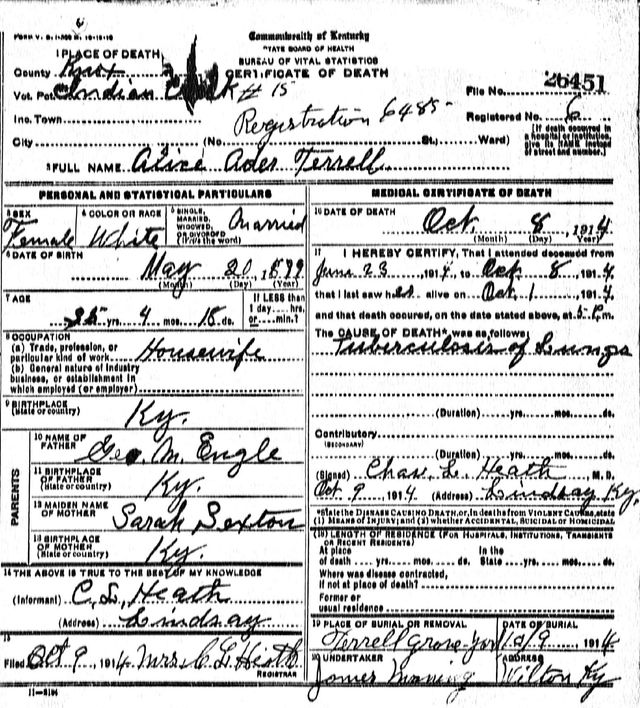 Commonwealth of Kentucky
STATE BOARD OF HEALTH
BUREAU OF VITAL STATISTICS
CERTIFICATE OF DEATH
1 PLACE OF DEATH
County Knox
Vot. Pct. Indian Creek # 15
File No. 26451
Inc. Town
Registration 6485
Registered No. 6
City (No. St., Ward)
[If death occurred in a hospital or institution, give its NAME instead of street and number.]
2 FULL NAME Alice Ader Terrell
PERSONAL AND STATISTICAL PARTICULARS
3 SEX Female
4 COLOR OR RACE White
5 SINGLE, MARRIED, WIDOWED, OR DIVORCED (Write the word) Married
6 DATE OF BIRTH
May 20, 1889
(Month) (Day) (Year)
7 AGE
25 yrs. 4 mos. 18 ds.
IF LESS than 1 day....hrs. or....min.?
8 OCCUPATION
(a) Trade, profession, or particular kind of work Housewife
(b) General nature of industry business, or establishment in which employed (or employer)
9 BIRTHPLACE
(State or country) Ky.
PARENTS
10 NAME OF FATHER Geo. M. Engle
11 BIRTHPLACE OF FATHER (State or country) Ky.
12 MAIDEN NAME OF MOTHER Sarah Sexton
13 BIRTHPLACE OF MOTHER (State or country) Ky.
14 THE ABOVE IS TRUE TO THE BEST OF MY KNOWLEDGE
(Informant) C. L. Heath
(Address) Lindsay
15
Filed Oct 9, 1914 Mrs. C L Heath
REGISTRAR
11-3184
MEDICAL CERTIFICATE OF DEATH
16 DATE OF DEATH
Oct. 8, 1914
(Month) (Day) (Year)
17 I HEREBY CERTIFY, That I attended deceased from
June 23 1914, to Oct 8, 1914,
that I last saw her alive on Oct 1, 1914,
and that death occured, on the date stated above, at 5 P.m.
The CAUSE OF DEATH* was as follows:
Tuberculosis of Lungs
(Duration) yrs. mos. ds.
Contributory
(SECONDARY)
(Duration) yrs. mos. ds.
(Signed) Chas. L. Heath M. D.
Oct 9, 1914 (Address) Lindsay Ky.
*State the DISEASE CAUSING DEATH, or, in deaths from VIOLENT CAUSES, state
(1) MEANS OF INJURY; and (2) whether ACCIDENTAL, SUICIDAL or HOMICIDAL
(18) LENGTH OF RESIDENCE (FOR HOSPITALS, INSTITUTIONS, TRANSIENTS OR RECENT RESIDENTS)
At place of death yrs. mos. ds. In the State yrs. mos. ds.
Where was disease contracted, if not at place of death?
Former or usual residence
19 PLACE OF BURIAL OR REMOVAL
DATE OF BURIAL
Terrell 10/9, 1914
20 UNDERTAKER
ADDRESS
Wilton Ky